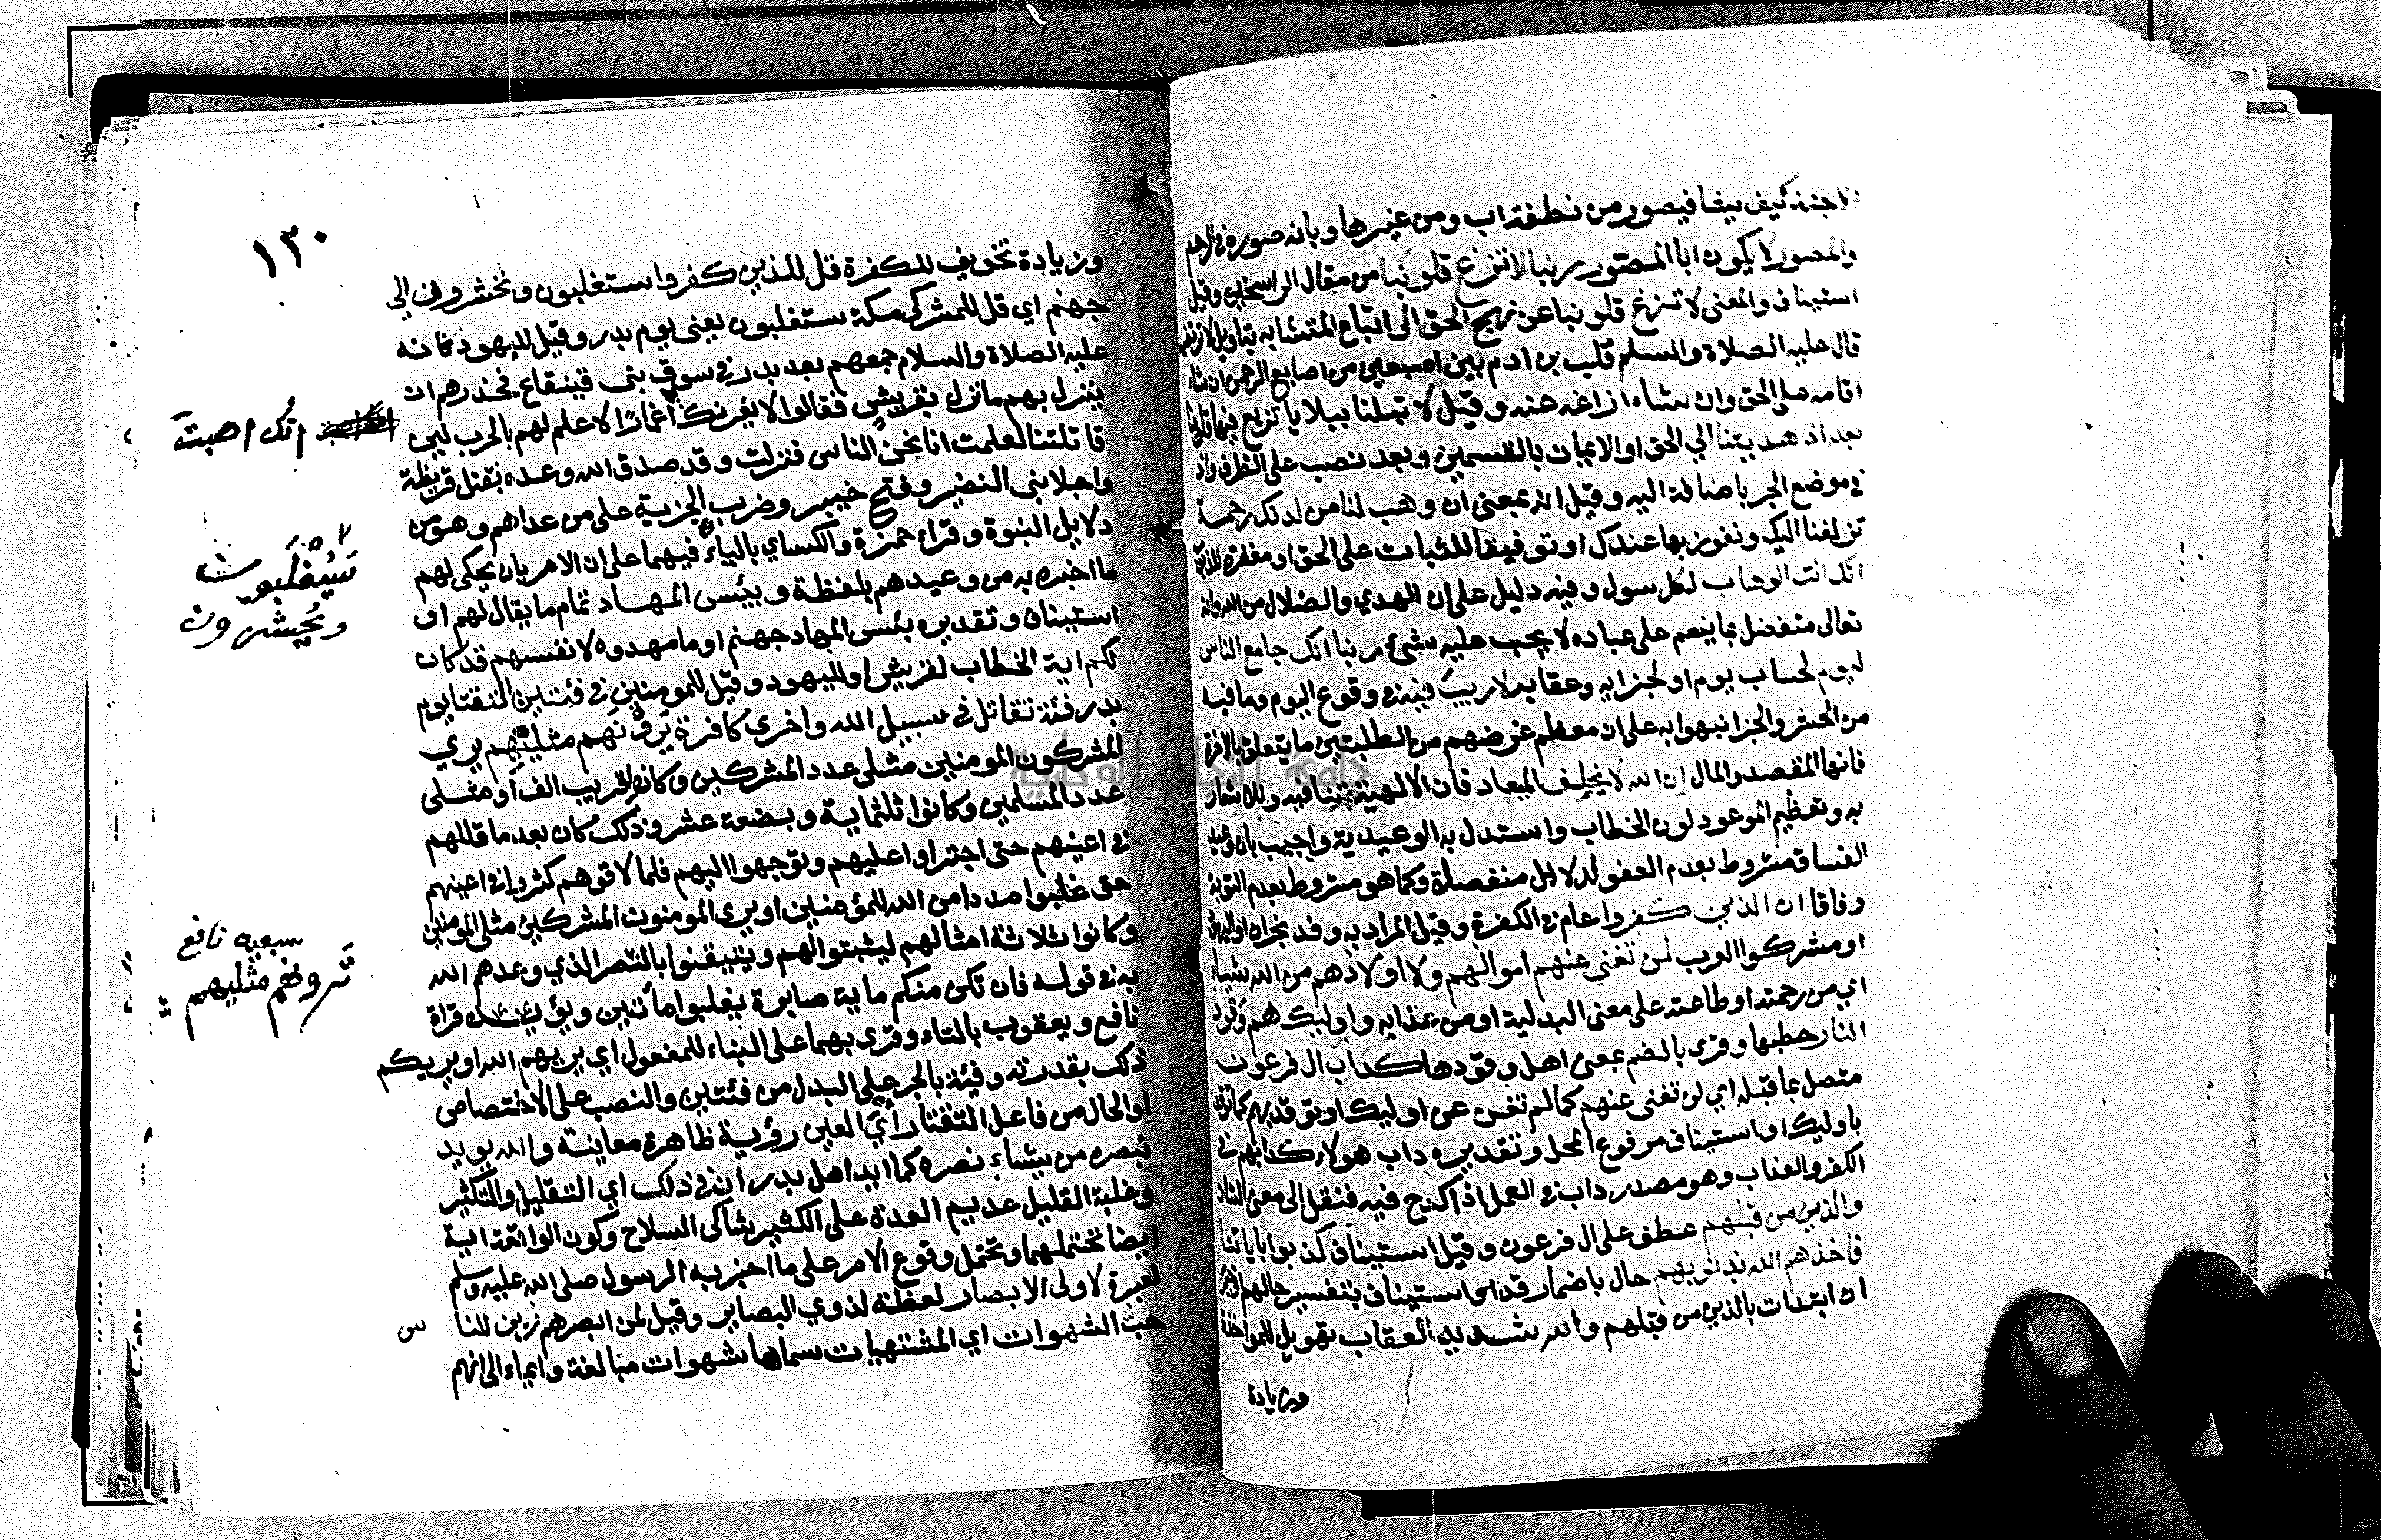 الاجنة كيف يشا فيصور من نطفة اب ومن غيرها وبانه صوره في الرحم
والمصور لا يكون ابا المصور ربنا لا تزغ قلوبنا من مقال الراسخين وقيل
استيناف والمعنى لا تزغ قلوبنا عن نهج الحق الى اتباع المتشابه بتاويل لا ترتضيه
قال عليه الصلاة والسلام قلب بن ادم بين اصبعين من اصابع الرحمن ان شاء
اقامه على الحق وان شاء ازاغه عنه وقيل لا تبلنا ببلايا تزيغ فيها قلوبنا
بعد اذ هديتنا الي الحق او الايمان بالقسمين وبعد نصب على الظرف واذ
في موضع الجر باضافة اليه وقيل انه بمعنى ان وهب لنا من لدنك رحمة
تزلفنا اليك ونفوز بها عندك او توفيقا للثبات على الحق او مغفرة للذنوب
انك انت الوهاب لكل سول وفيه دليل على ان الهدي والضلال من الله وانه
تعالى متفضل بما ينعم على عباده لا يجب عليه شيء ربنا انك جامع الناس
ليوم لحساب يوم او لجزايه وعقابه لا ريب فيه في وقوع اليوم وما فيه
من الحشر والجزا نبهوا به على ان معظم غرضهم من الطلبتين ما يتعلق بالاخرة
فانها المقصد والمال ان الله لا يخلف الميعاد فان الالهية تنافيه وللاشعار
به وتعظيم الموعود لون الخطاب واستدل به الوعيدية واجيب بان وعيد
الفساق مشروط بعدم العفو لدلايل منفصلة وكما هو مشروط بعدم التوبة
وفاقا ان الذين كفروا عام في الكفرة وقيل المراد به وفد نجران او اليهود
او مشركوا العرب لن تغني عنهم اموالهم ولا اولادهم من الله شياء
اي من رحمته او طاعته على معنى البدلية او من عذابه واوليك هم وقود
النار حطبها وقرى بالضم بمعنى اهل وقودها كداب ال فرعون
متصل بما قبله اي لن تغنى عنهم كما لم تغن عن اوليك او توقد بهم كما توقد
باوليك او استيناف مرفوع المحل وتقديره داب هولاء كدابهم في
الكفر والعذاب وهو مصدر داب في العمل اذا كدح فيه فنقل الى معنى الشان
والذين من قبلهم عطف على ال فرعون وقيل استيناف كذبوا باياتنا
فاخذهم الله بذنوبهم حال باضمار قد او استيناف بتفسير حالهم او خبر
ان ابتدات بالذين من قبلهم والله شديد العقاب تهويل للمواخذة
وزيادة
١٣٠
وزيادة تخويف للكفرة قل للذين كفروا ستغلبون وتحشرون الى
جهنم اي قل لمشركى مكة ستغلبون يعنى يوم بدر وقيل لليهود فانه
عليه الصلاة والسلام جمعهم بعد بدر في سوق بنى قينقاع فحذرهم ان
ينزل بهم ما نزل بقريش فقالوا لا يغرنك اغمارًا لا علم لهم بالحرب لين
انك اصبت
قاتلتنا لعلمت انا نحن الناس فنزلت وقد صدق الله وعده بقتل قريظة
واجلا بنى النضير وفتح خيبر وضرب الجزية على من عداهم وهو من
دلايل النبوة وقراء حمزة والكساي بالياء فيهما على ان الامر بان يحكى لهم
سَيُغلَبون
ويُحشرون
ما اخبره به من وعيدهم بلفظة وبيئس المهاد تمام ما يقال لهم او
استيناف وتقديره بئس المهاد جهنم او ما مهدوه لانفسهم قد كان
لكم اية الخطاب لقريش او لليهود وقيل للمومنين في فئتين التقتا يوم
بدر فئة تقاتل في سبيل الله واخرى كافرة يَرونهم مثليهم يري
المشركون المومنين مثلى عدد المشركين وكانوا قريب الف او مثلى
عدد المسلمين وكانوا ثلثماية وبضعة عشر وذلك كان بعد ما قللهم
في اعينهم حتى اجتراوا عليهم وتوجهوا اليهم فلما لاقوهم كثروا في اعينهم
حتى غلبوا مددا من الله للمؤمنين او يرى المومنون المشركين مثلى المومنين
وكانوا ثلاثة امثالهم ليثبتوا لهم ويتيقنوا بالنصر الذي وعدهم الله
به في قوله فان تكن منكم ماية صابرة يغلبوا مأتين ويؤيده قراة
سبعيه نافع
تَرونهم مثليهم
نافع ويعقوب بالتاء وقرى بهما على البناء للمفعول اي يريهم الله او يريكم
ذلك بقدرته وفيئة بالجر على البدل من فئتين والنصب على الاختصاص
او الحال من فاعل التقتا رأي العين رؤية ظاهرة معاينة والله يويد
بنصره من يشاء نصره كما ايد اهل بدر ان في ذلك اي التقليل والتكثير
وغلبة القليل عديم العدة على الكثير شاكى السلاح وكون الواقعة اية
ايضا تحتملهما وتحتمل وقوع الامر على ما اخبر به الرسول صلى الله عليه وسلم
لعبرة لاولى الابصار لعظة لذوي البصاير وقيل لمن ابصرهم زين للنا
س
حب الشهوات اي المشتهيات سماها شهوات مبالغة وايماء الى انهم